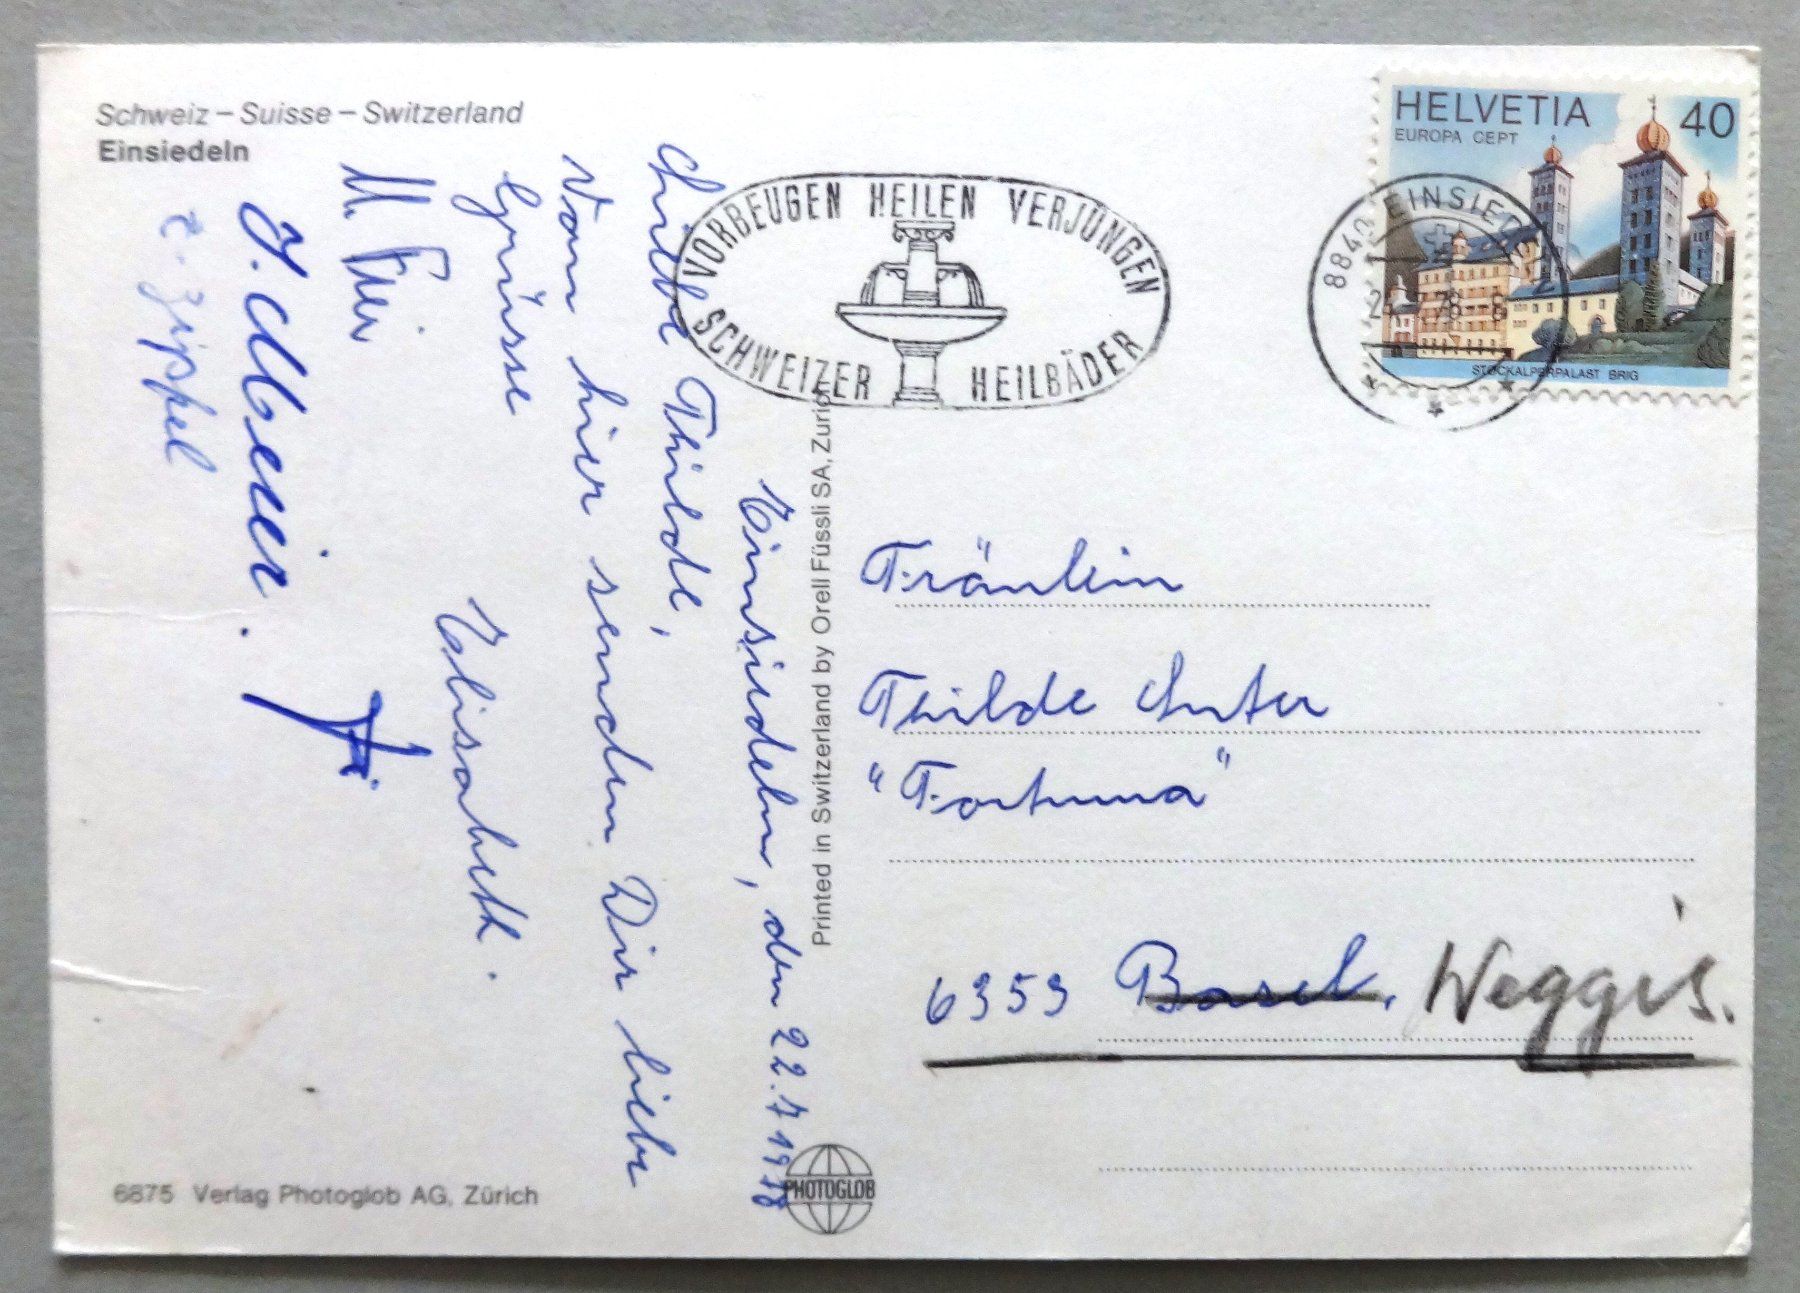 Schweiz – Suisse – Switzerland
Einsiedeln
Einsiedeln, den 22.7.1978
Liebe Thilde,
Von hier senden Dir liebe
Grüsse
Elisabeth.
M. Frei
J. Meier.
Zippel
6875 Verlag Photoglob AG, Zürich
Printed in Switzerland by Orell Füssli SA, Zurich
PHOTOGLOB
VORBEUGEN HEILEN VERJÜNGEN
SCHWEIZER HEILBÄDER
HELVETIA 40
EUROPA CEPT
STOCKALPERPALAST BRIG
8840 EINSIEDELN
Fräulein
Thilde Suter
"Fortuna"
6353 Basel, Weggis.